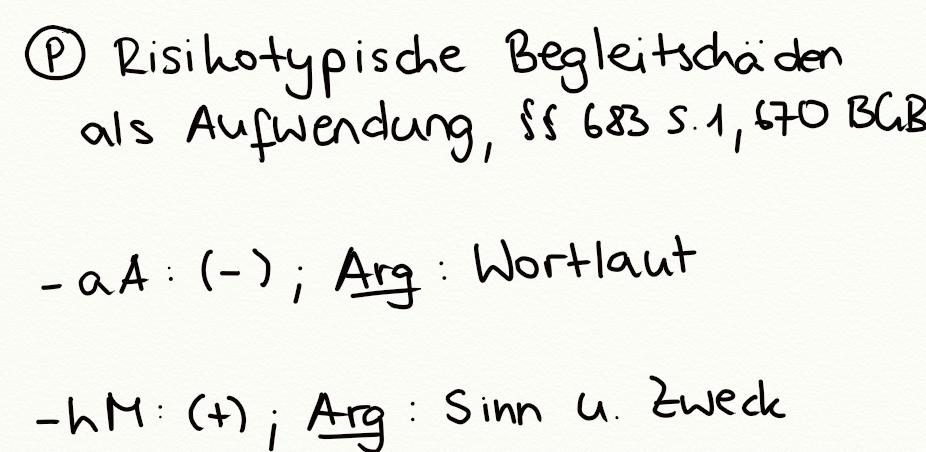 Ⓟ Risikotypische Begleitschäden
als Aufwendung, §§ 683 S.1, 670 BGB
- aA: (-); Arg: Wortlaut
- hM: (+); Arg: Sinn u. Zweck